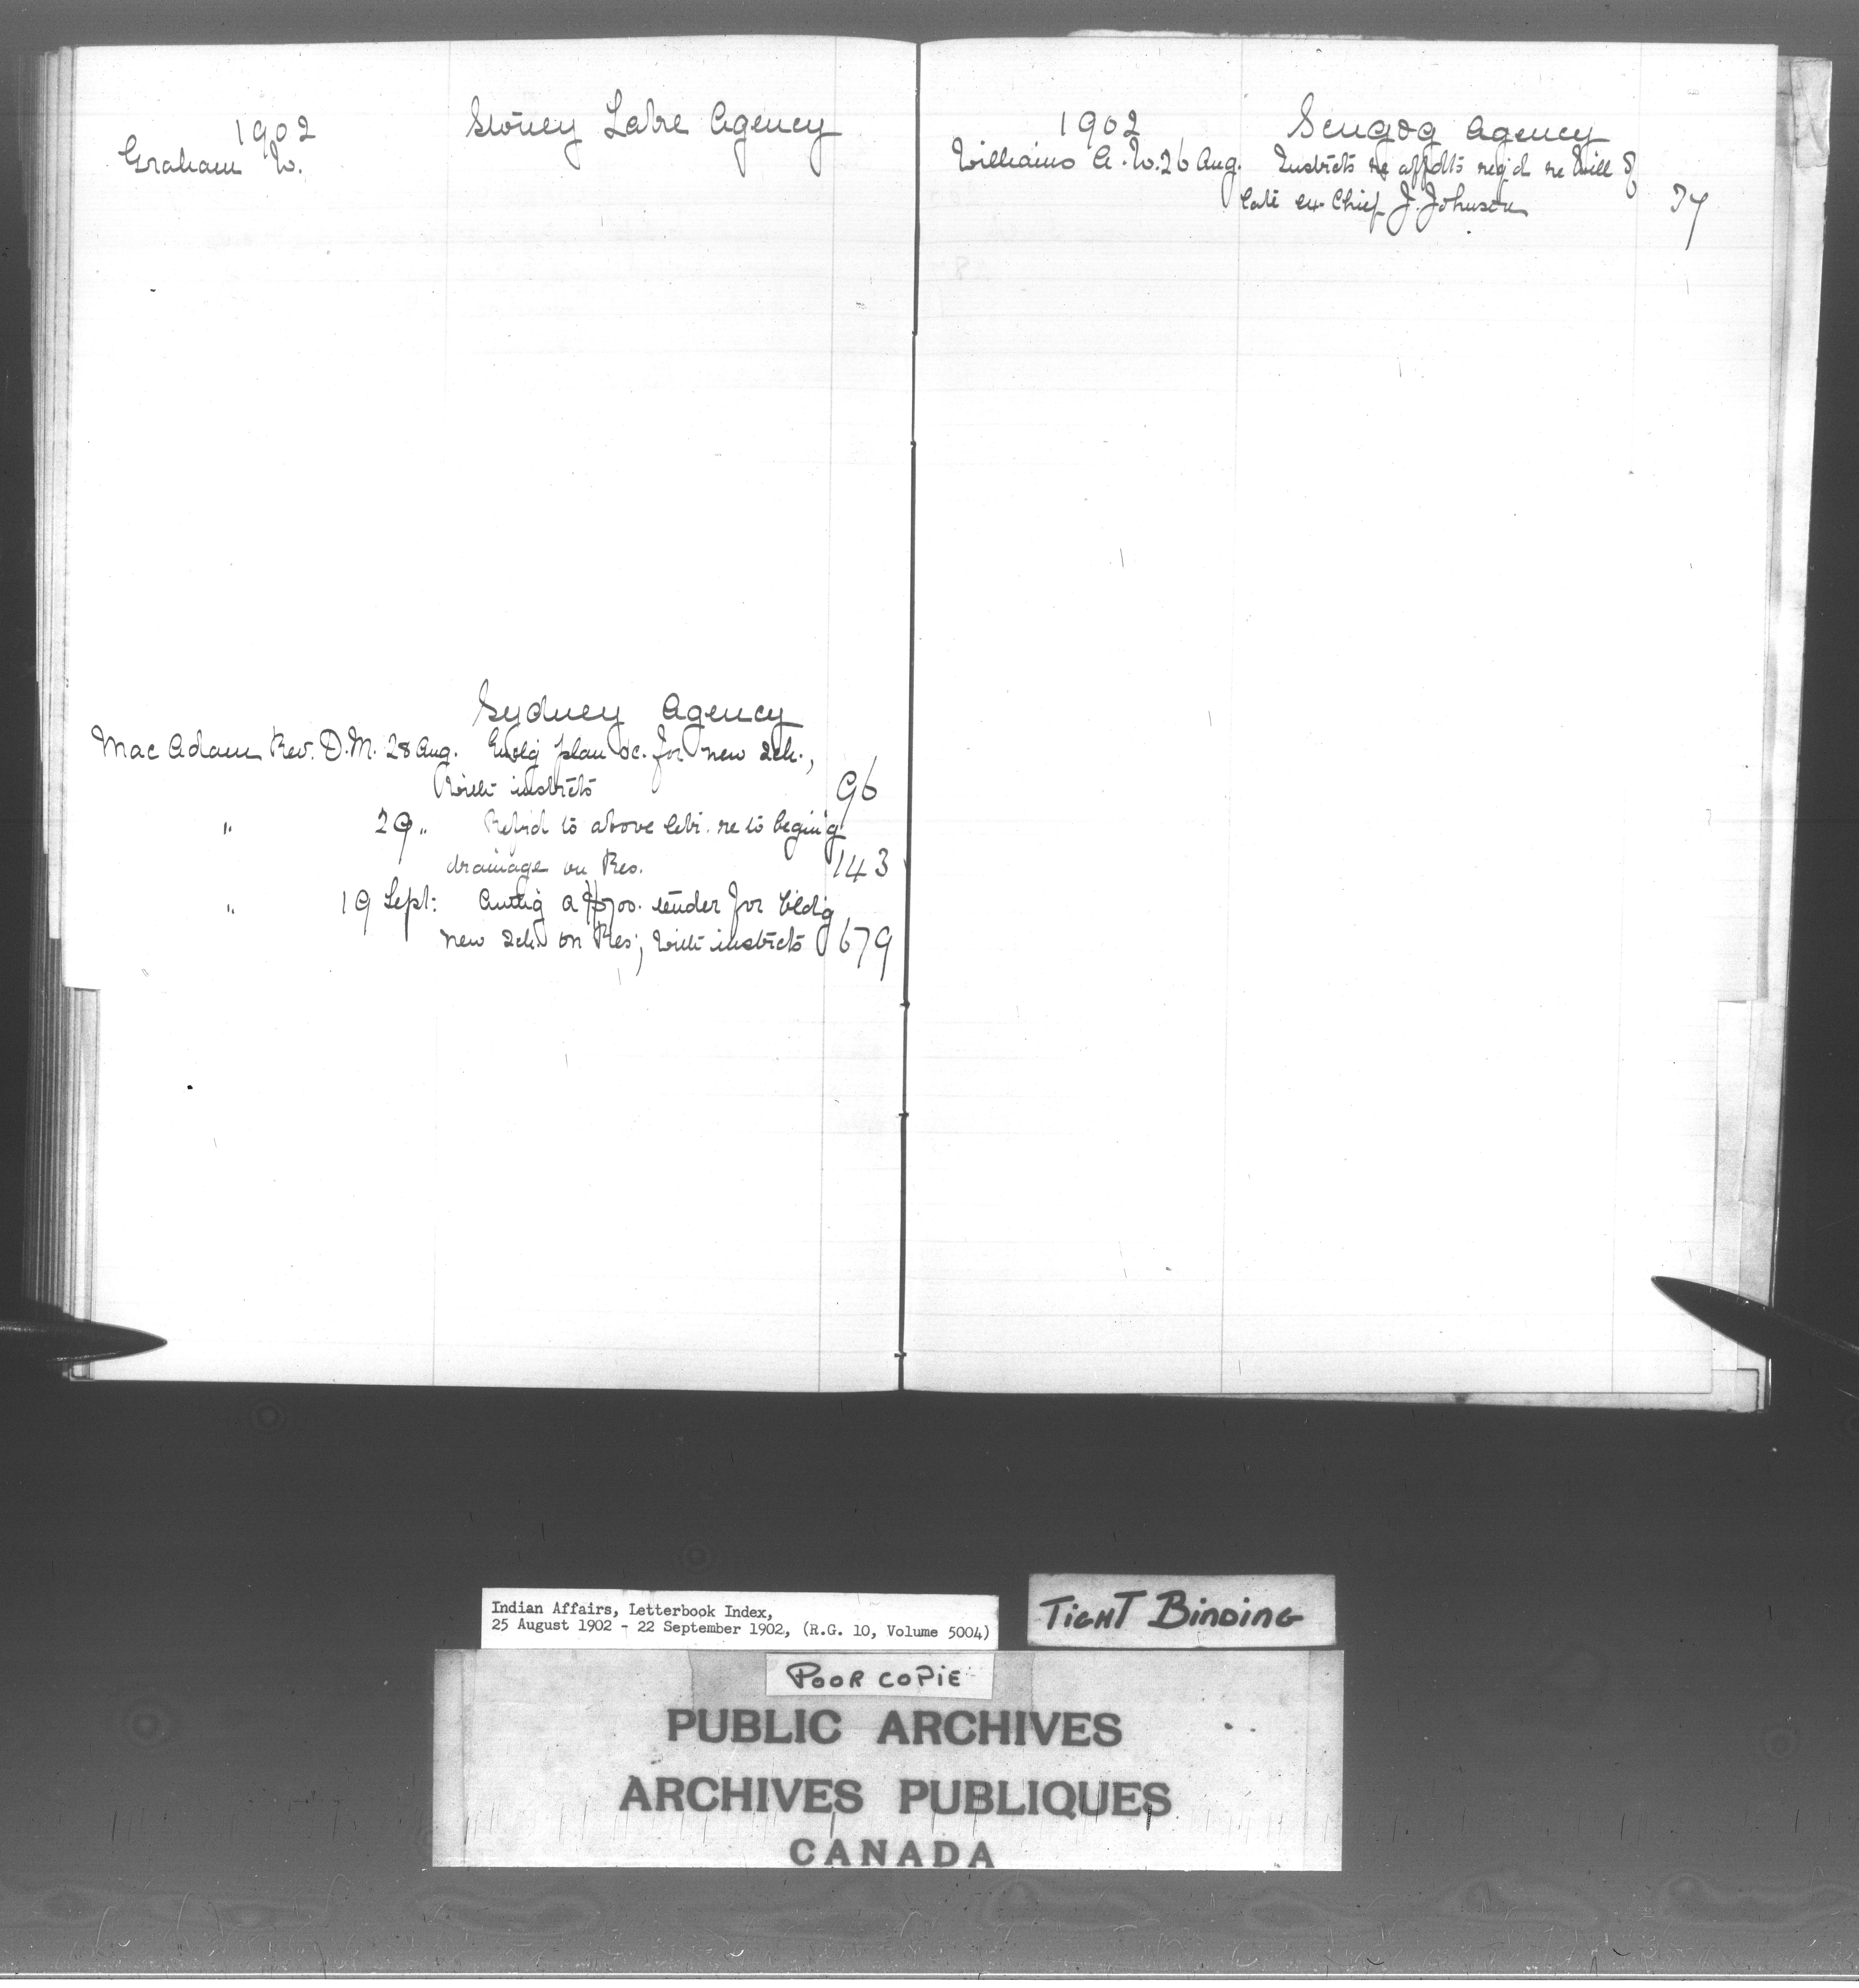 1902 Stoney Lake Agency
Graham W.
Sydney Agency
Mac Adam Rev. D.M. 28 Aug. Enclg plan &c. for new sch.,
with instrcts 96
" 29 " Refrd to above letr. re to beging
drainage on Res. 143
" 19 Sept: Authg a $700. tender for bldg
new sch on Res; with instrcts 679
1902 Scugog Agency
Williams A. W. 26 Aug. Instrcts re affdts reqd re will of
late ex-Chief J. Johnson 37
Indian Affairs, Letterbook Index,
25 August 1902 - 22 September 1902, (R.G. 10, Volume 5004)
TIGHT BINDING
POOR COPIE
PUBLIC ARCHIVES
ARCHIVES PUBLIQUES
CANADA